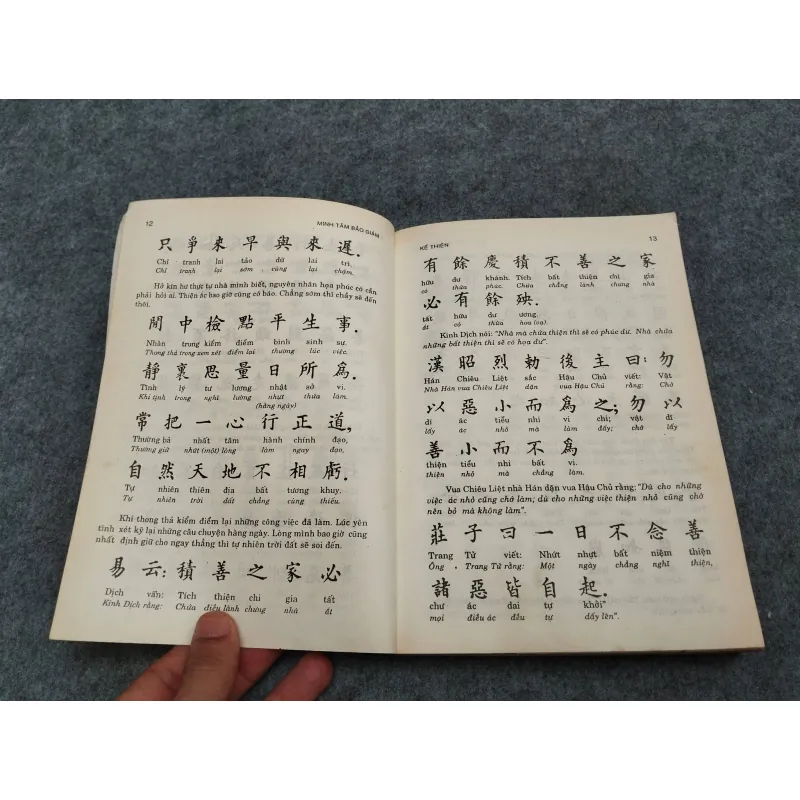 12
MINH TÂM BẢO GIÁM
只爭來早與來遲.
Chỉ tranh lai tảo dữ lai trì,
Chỉ tranh lại sớm, cùng lại chậm.
Hỡ kín hư thực tự nhà mình biết, nguyên nhân họa phúc có cần
phải hỏi ai. Thiện ác bao giờ cũng có báo. Chẳng sớm thì chầy sẽ đến
thôi.
閒中檢點平生事.
Nhàn trung kiểm điểm bình sinh sự.
Thong thả trong xem xét điểm lại thường lúc việc.
靜裏思量日所為.
Tĩnh lý tư lương nhật sở vi.
Khi tịnh trong nghĩ lường nhựt thửa làm.
(hằng ngày)
常把一心行正道,
Thường bả nhất tâm hành chính đạo,
Thường giữ nhứt (một) lòng làm ngay đạo,
自然天地不相虧.
Tự nhiên thiên địa bất tương khuy.
Tự nhiên trời đất chẳng cùng thiếu.
Khi thong thả kiểm điểm lại những công việc đã làm. Lúc yên
tĩnh xét kỹ lại những câu chuyện hàng ngày. Lòng mình bao giờ cũng
nhất định giữ cho ngay thẳng thì tự nhiên trời đất sẽ soi đến.
易云: 積善之家必
Dịch vấn: Tích thiện chi gia tất
Kinh Dịch rằng: Chứa điều lành chưng nhà ắt
KẾ THIỆN
13
有餘慶積不善之家
hữu dư khánh. Tích bất thiện chi gia
có thừa phúc. Chứa chẳng lành chưng nhà
必有餘殃.
tất hữu dư ương.
ắt có thừa họa (vạ).
Kinh Dịch nói: "Nhà mà chứa thiện thì sẽ có phúc dư. Nhà chứa
những bất thiện thì sẽ có họa dư".
漢昭烈勅後主曰: 勿
Hán Chiêu Liệt sắc Hậu Chủ viết: Vật
Nhà Hán vua Chiêu Liệt dặn vua Hậu Chủ rằng: Chớ
以惡小而為之; 勿以
dĩ ác tiểu nhi vi chi; vật dĩ
lấy ác nhỏ mà làm đấy; chớ lấy
善小而不為
thiện tiểu nhi bất vi.
thiện nhỏ mà chẳng làm.
Vua Chiêu Liệt nhà Hán dặn vua Hậu Chủ rằng: "Dù cho những
việc ác nhỏ cũng chớ làm; dù cho những việc thiện nhỏ cũng chớ
nên bỏ mà không làm".
莊子曰一日不念善
Trang Tử viết: Nhứt nhựt bất niệm thiện
Ông Trang Tử rằng: Một ngày chẳng nghĩ thiện,
諸惡皆自起.
chư ác dai tự khởi"
mọi điều ác đều tự dấy lên".